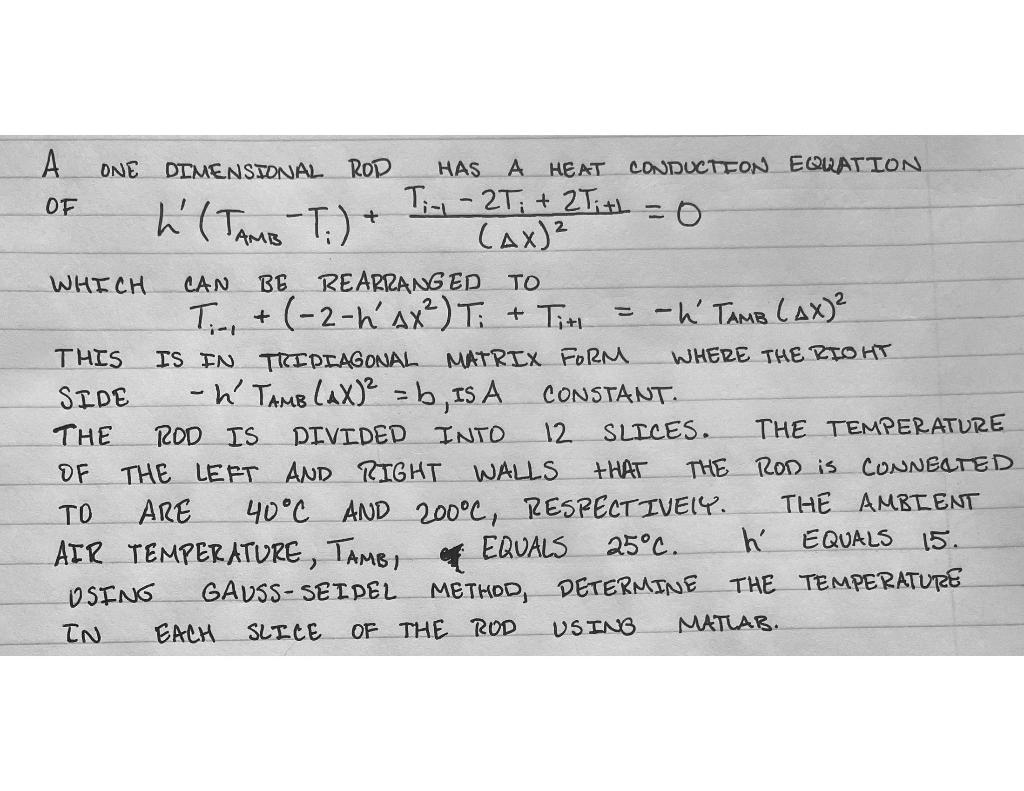 A ONE DIMENSIONAL ROD HAS A HEAT CONDUCTION EQUATION
OF h'(T_AMB - T_i) + (T_i-1 - 2T_i + 2T_i+1)/(ΔX)² = 0
WHICH CAN BE REARRANGED TO
T_i-1 + (-2-h'ΔX²)T_i + T_i+1 = -h' T_AMB (ΔX)²
THIS IS IN TRIDIAGONAL MATRIX FORM WHERE THE RIGHT
SIDE -h' T_AMB (ΔX)² = b, IS A CONSTANT.
THE ROD IS DIVIDED INTO 12 SLICES. THE TEMPERATURE
OF THE LEFT AND RIGHT WALLS tHAT THE ROD iS CONNECTED
TO ARE 40°C AND 200°C, RESPECTIVElY. THE AMBIENT
AIR TEMPERATURE, T_AMB, EQUALS 25°C. h' EQUALS 15.
USING GAUSS-SEIDEL METHOD, DETERMINE THE TEMPERATURE
IN EACH SLICE OF THE ROD USING MATLAB.